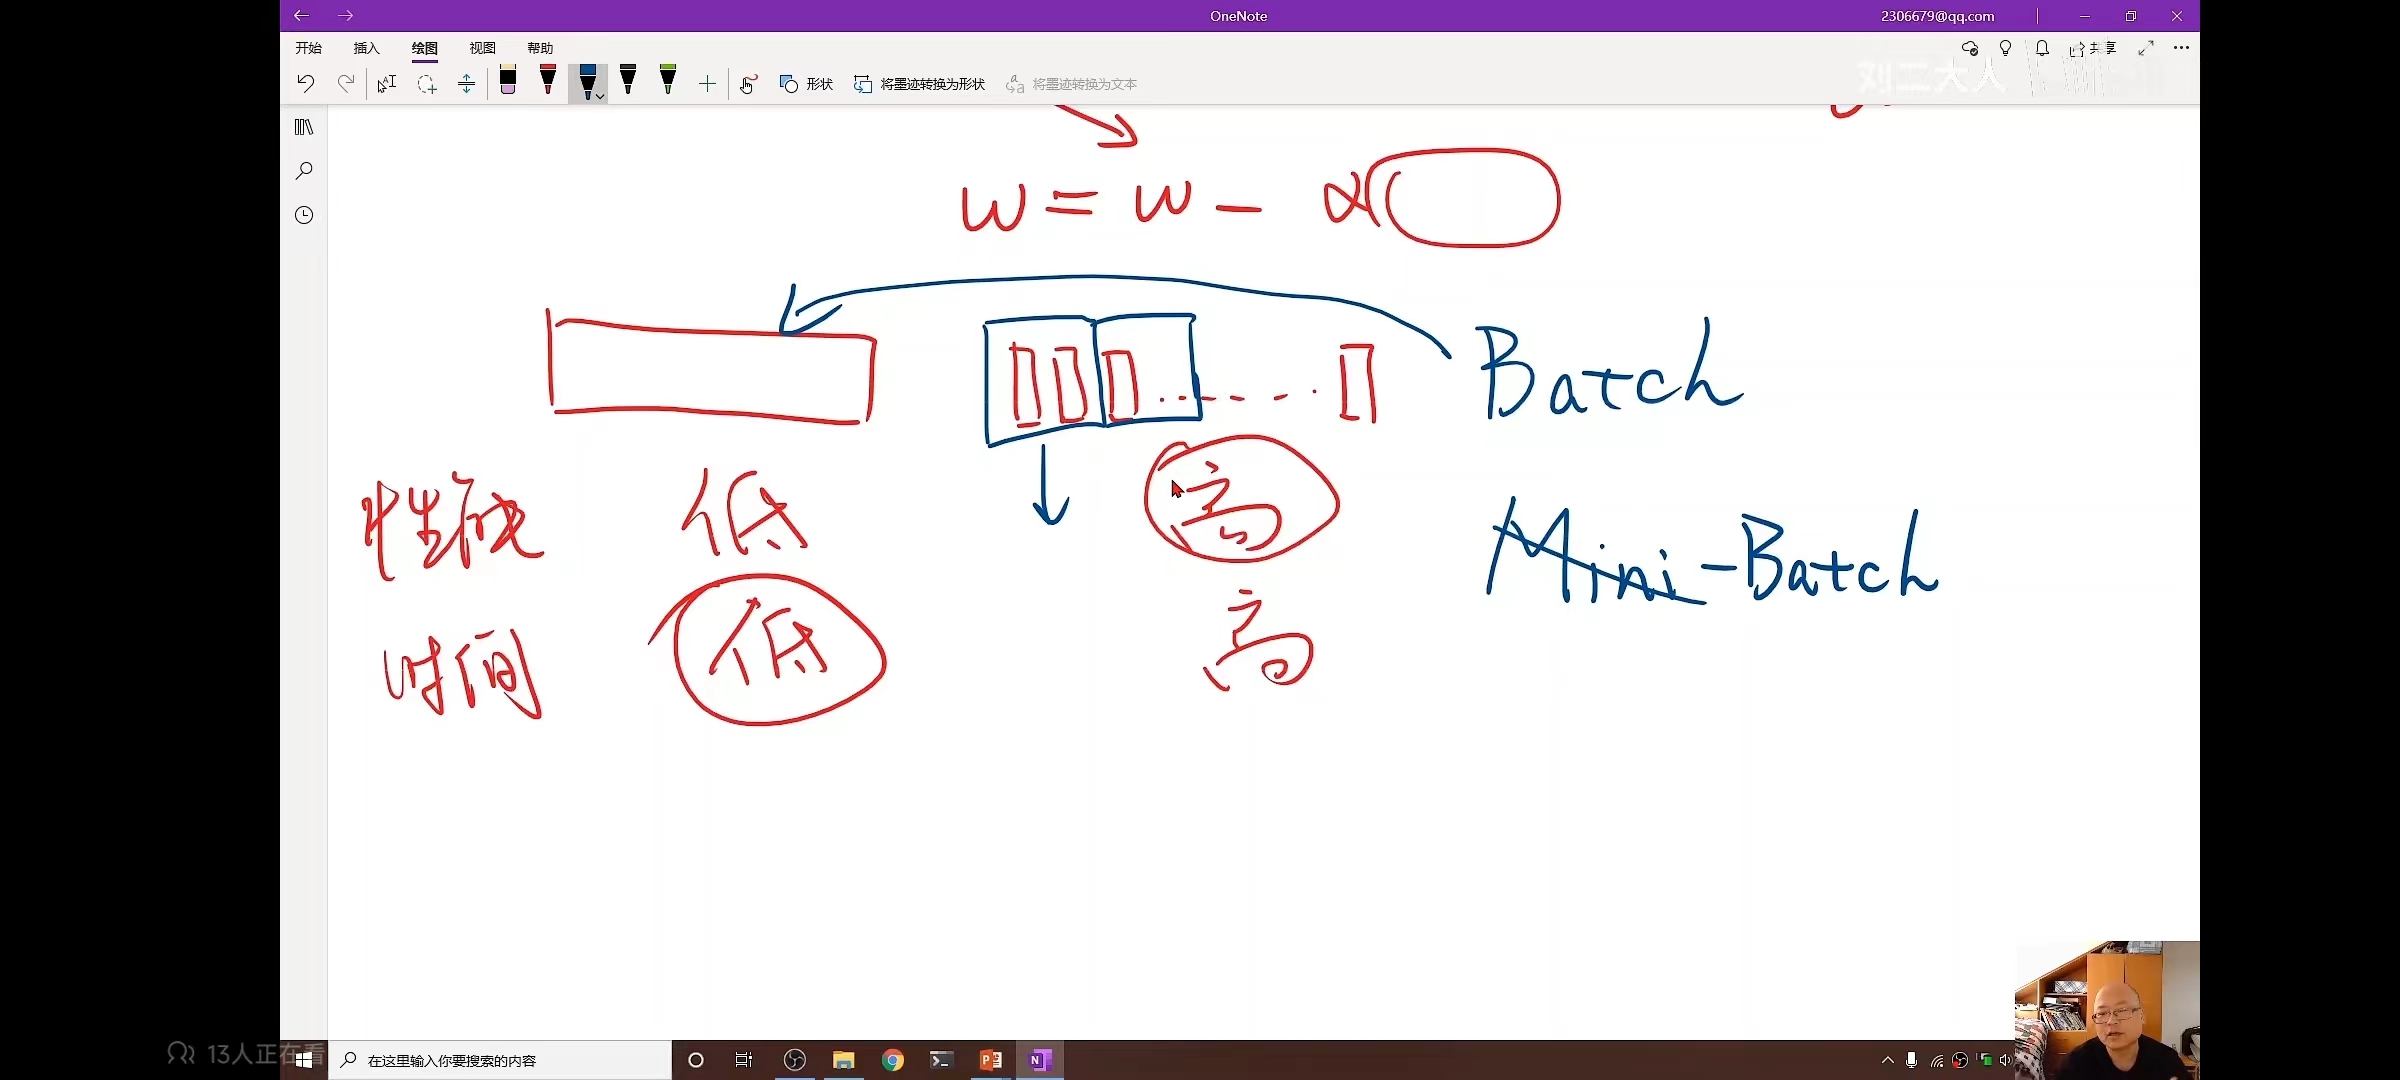 OneNote
2306679@qq.com
开始 插入 绘图 视图 帮助
共享
形状 将墨迹转换为形状 将墨迹转换为文本
刘二大人
w = w - α
Batch
性能 低 高
Mini-Batch
时间 低 高
13人正在看
在这里输入你要搜索的内容